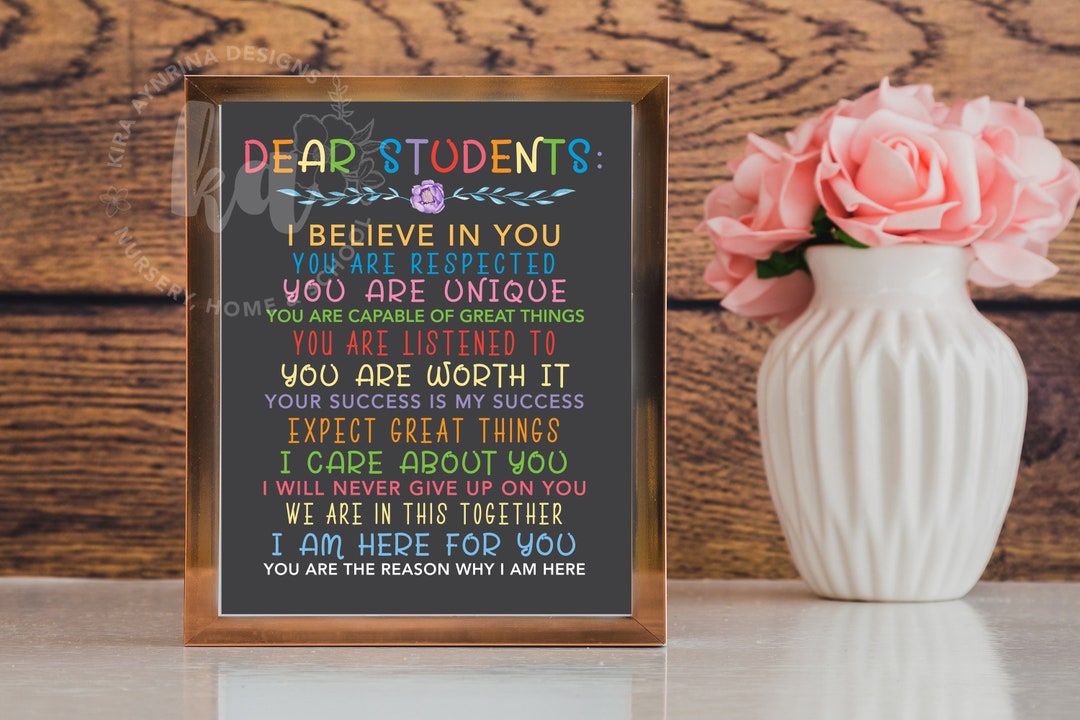 KIRA AYNRINA DESIGNS
ka
NURSERY, HOME & SCHOOL
DEAR STUDENTS:
I BELIEVE IN YOU
YOU ARE RESPECTED
YOU ARE UNIQUE
YOU ARE CAPABLE OF GREAT THINGS
YOU ARE LISTENED TO
YOU ARE WORTH IT
YOUR SUCCESS IS MY SUCCESS
EXPECT GREAT THINGS
I CARE ABOUT YOU
I WILL NEVER GIVE UP ON YOU
WE ARE IN THIS TOGETHER
I AM HERE FOR YOU
YOU ARE THE REASON WHY I AM HERE